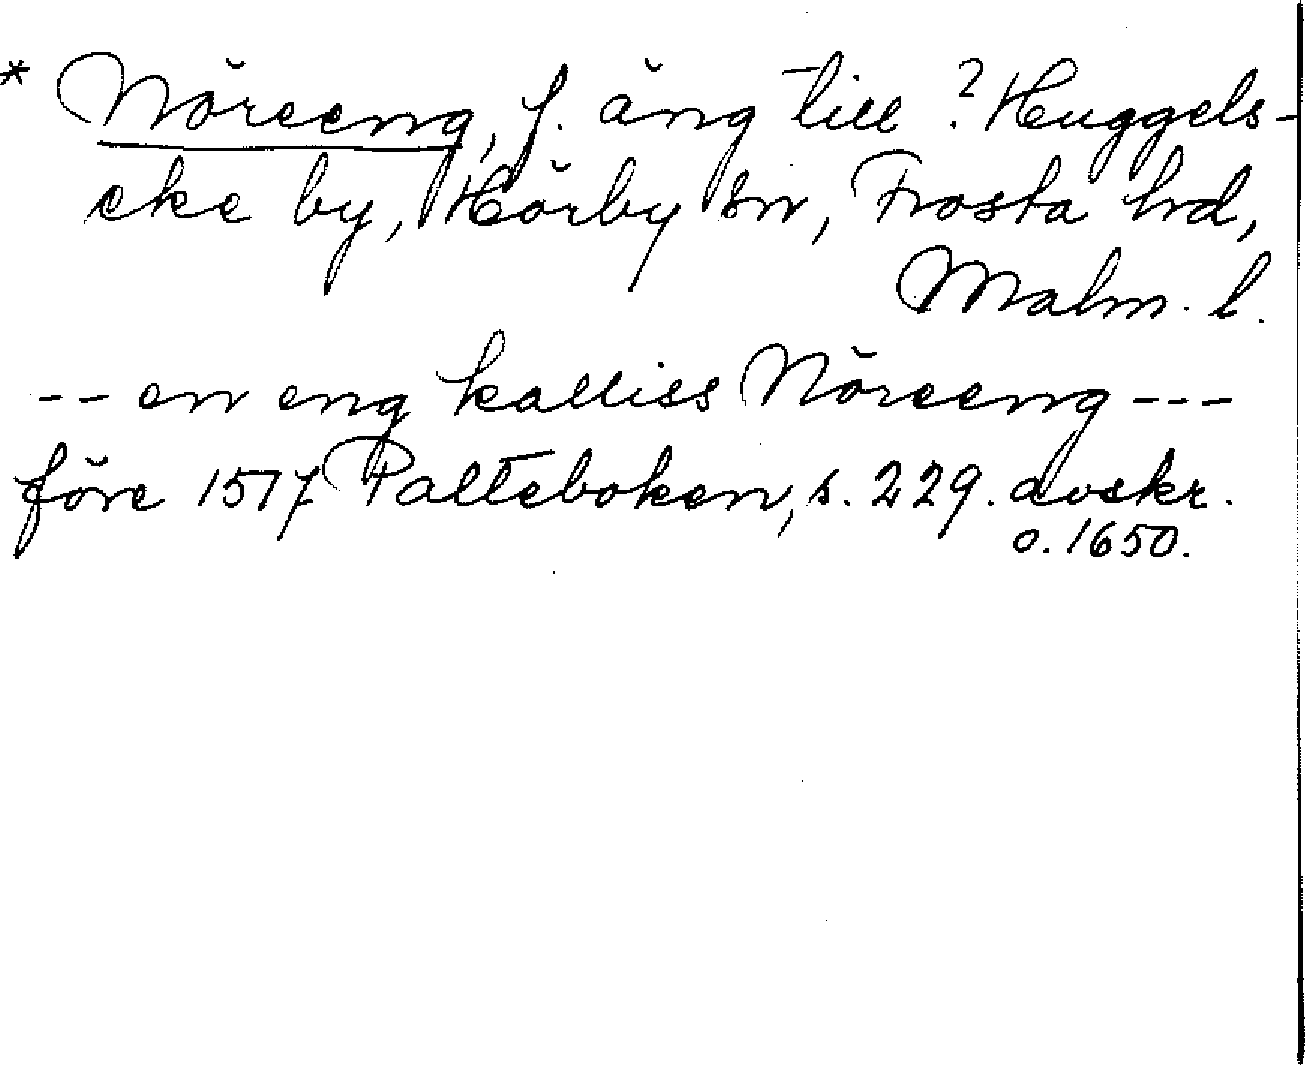 * Nöreeng, f. äng till ? Huggels-
eke by, Hörby sn, Frosta hrd,
Malm. l.
-- en eng kalliss Nöreeng ---
före 1517 Palteboken, s. 229. avskr.
o. 1650.